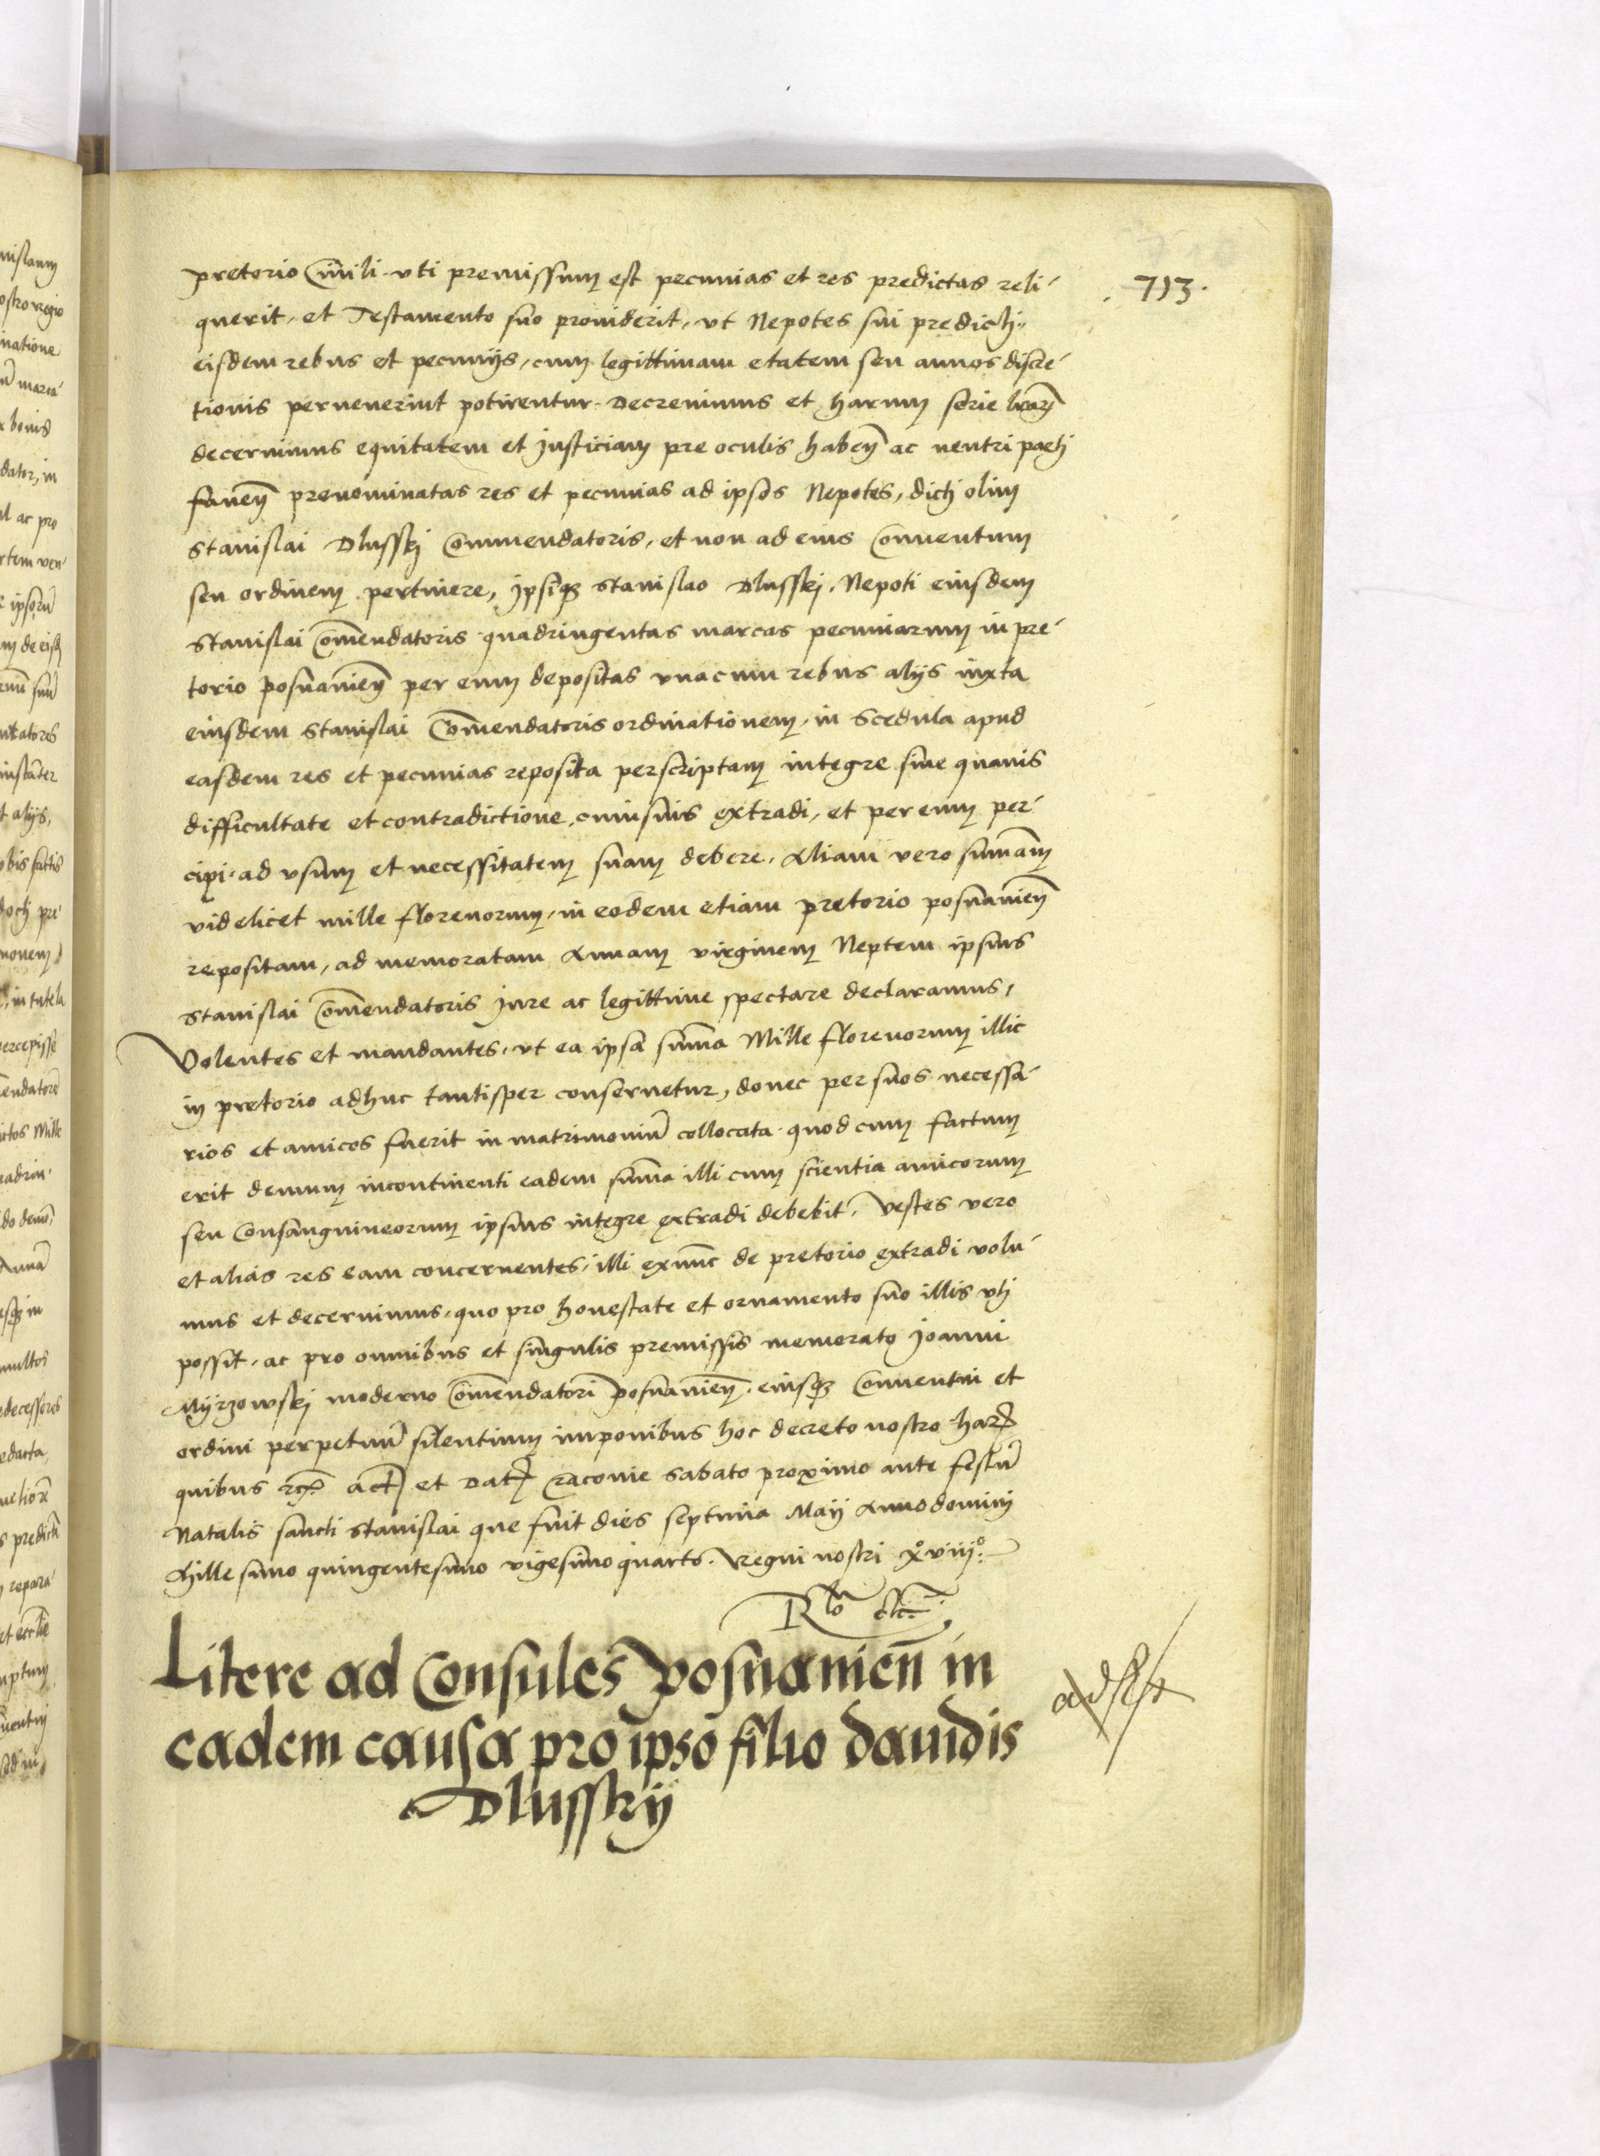 713.
pretorio Civili uti premissum est pecunias et res predictas reli-
querit, et Testamento suo providerit, ut Nepotes sui predicti,
eisdem rebus et pecuniis, cum legittimam etatem seu annos discre-
tionis pervenerint potirentur. Decrevimus et harum serie lrarum
decernimus equitatem et Justiciam pre oculis haben ac neutri parti
faven prenominatas res et pecunias ad ipsos Nepotes, dicti olim
Stanislai Dlusski Commendatoris, et non ad eius Conventum
seu ordinem pertinere, Ipsique Stanislao Dlusski, Nepoti eiusdem
Stanislai Comendatoris quadringentas marcas pecuniarum in pre-
torio posnanien per eum depositas una cum rebus aliis iuxta
eiusdem Stanislai Comendatoris ordinationem in Scedula apud
easdem res et pecunias reposita perscriptam integre sine quavis
difficultate et contradictione cuiusvis extradi, et per eum per-
cipi ad usum et necessitatem suam debere. Aliam vero sumam
videlicet mille florenorum, in eodem etiam pretorio posnanien
repositam, ad memoratam Annam virginem Neptem ipsius
Stanislai Comendatoris Jure ac legittime spectare declaramus,
Volentes et mandantes, ut ea ipsa suma Mille florenorum illic
in pretorio adhuc tantisper conservetur, donec per suos necessa-
rios et amicos fuerit in matrimoniu collocata. quod cum factum
erit demum incontinenti eadem suma illi cum scientia amicorum
seu Consanguineorum ipsius integre extradi debebit. Vestes vero
et alias res eam concernentes, illi exnunc de pretorio extradi volu-
mus et decernimus, quo pro honestate et ornamento suo illis uti
possit, ac pro omnibus et singulis premissis memorato Joanni
Myrzowski moderno Comendatori posnanien, eiusque Conventui et
ordini perpetuu silentium imponibus hoc decreto nostro har
quibus rc. act et Dat Cracovie Sabato proximo ante festu
Natalis sancti Stanislai que fuit dies septima Maij Anno domini
Millesimo quingentesimo vigesimo quarto. Regni nostri xviii°
Rlo etc.
Litere ad Consules posnanien in
eadem causa pro ipso filio davidis
Dlusskij